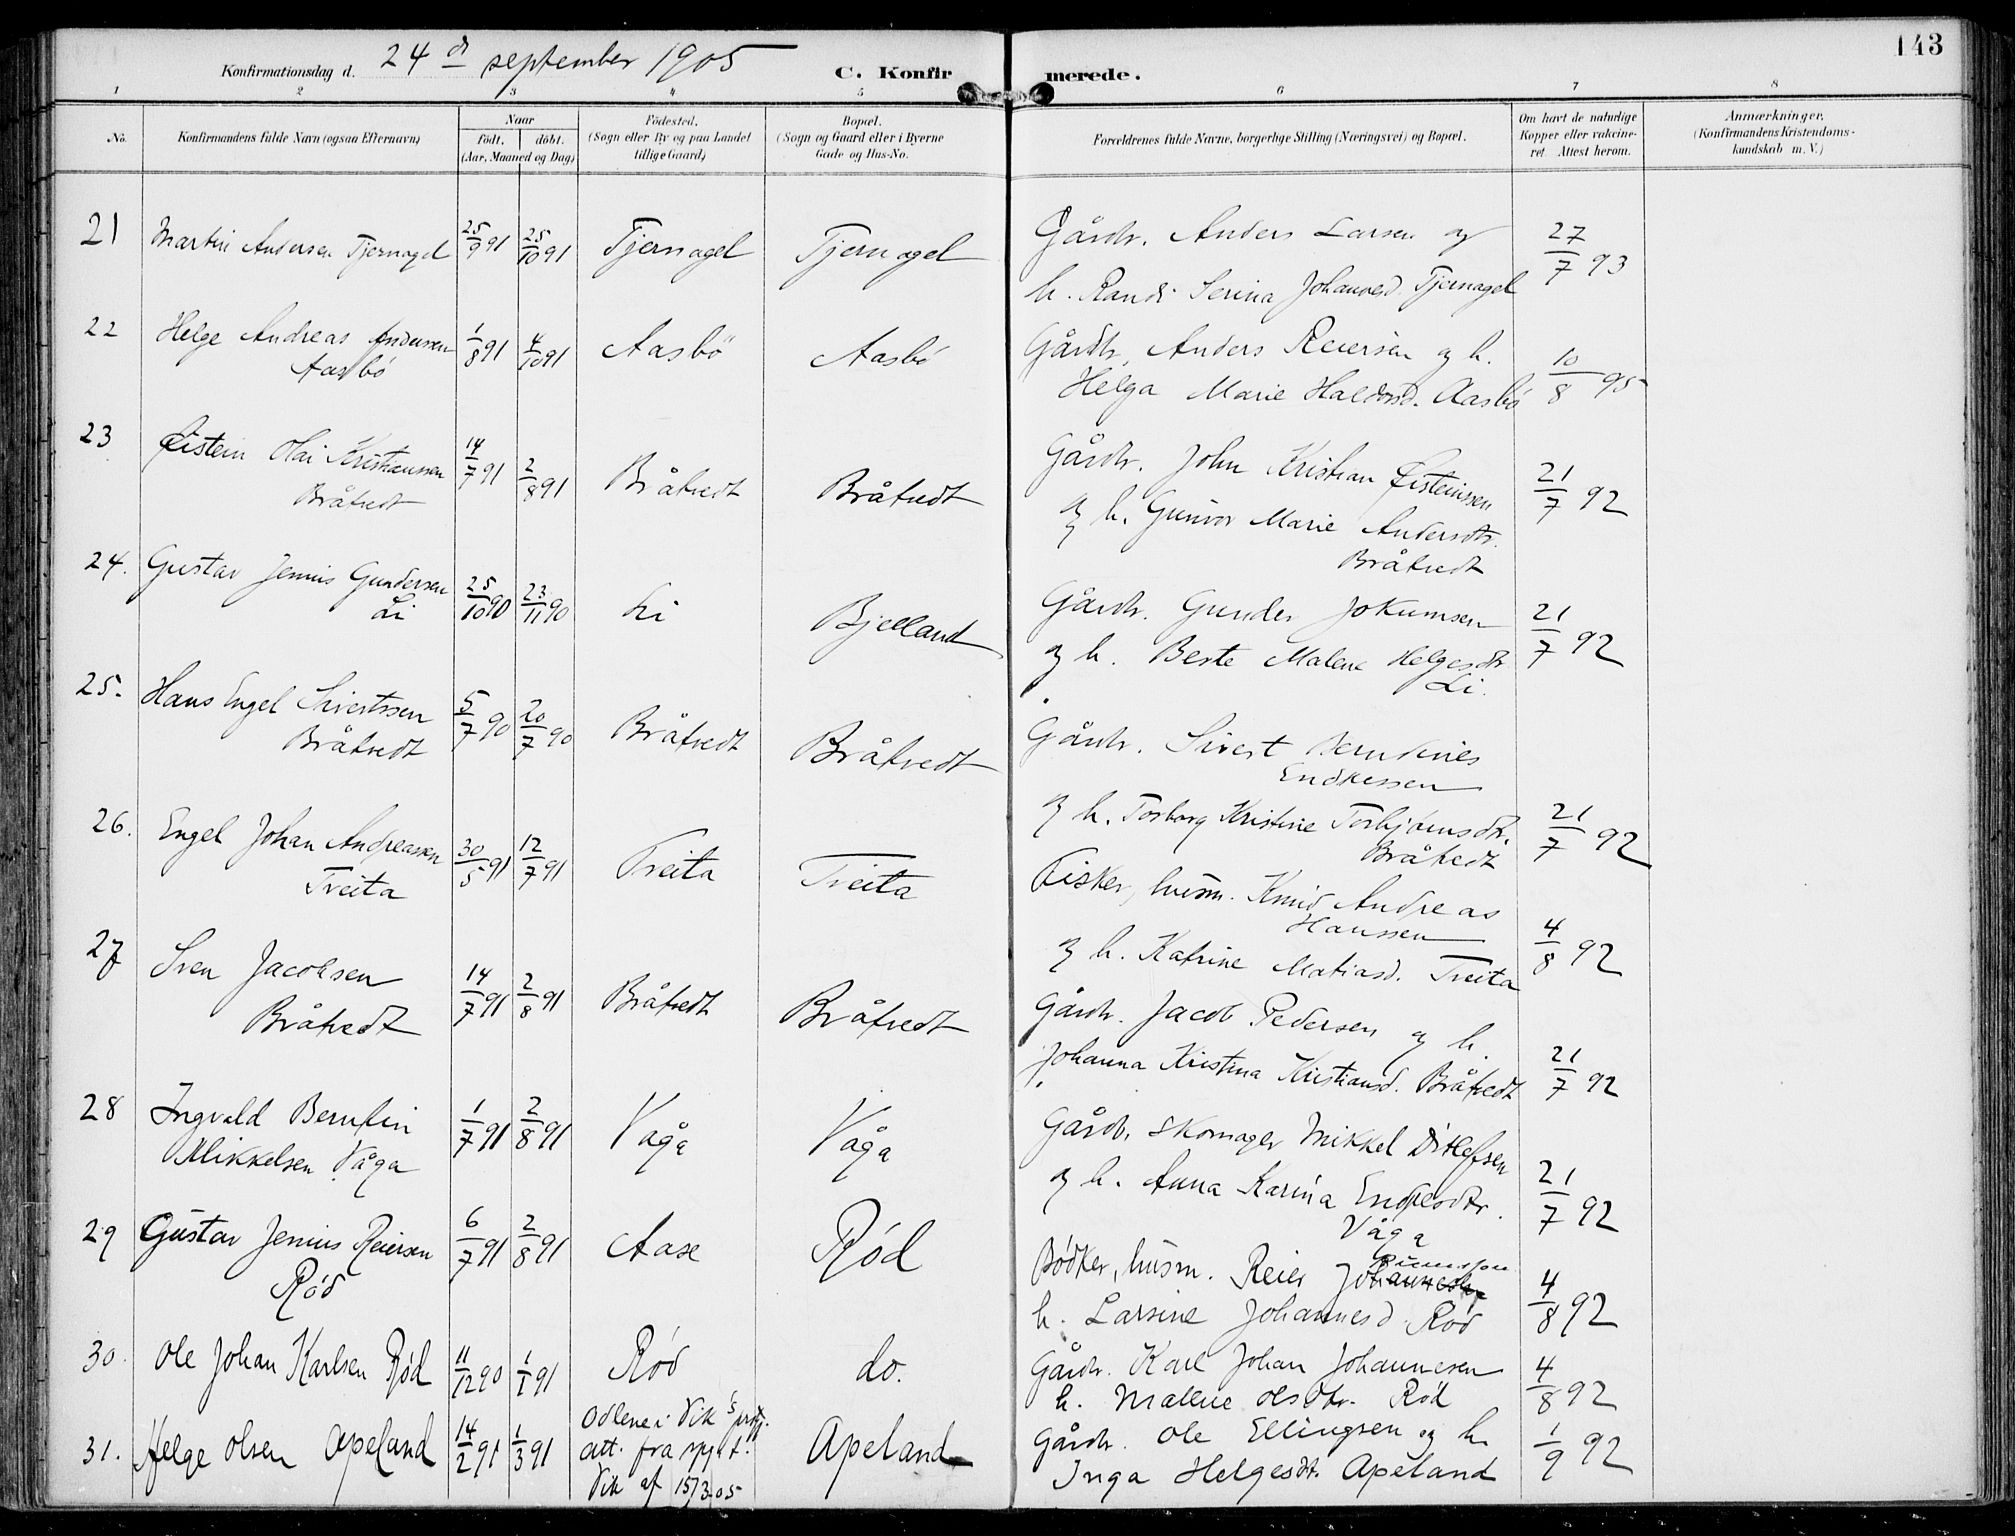 143
Konfirmationsdag d. 24de september 1905 C. Konfirmerede.
1 2 3 4 5 6 7 8
No. Konfirmandens fulde Navn (ogsaa Efternavn) Naar født. døbt. (Aar, Maaned og Dag) Fødested. (Sogn eller By og paa Landet tillige Gaard) Bopæl. (Sogn og Gaard eller i Byerne Gade og Hus-No. Forældrenes fulde Navne, borgerlige Stilling (Næringsvei) og Bopæl. Om havt de naturlige Kopper eller vakcineret. Attest herom. Anmærkninger. (Konfirmandens Kristendomskundskab m. V.)
21 Martin Andersen Tjernagel 25/9 91 25/10 91 Tjernagel Tjernagel Gårdbr. Anders Larsen og
h. Randi Serina Johannesd. Tjernagel 27/7 93
22 Helge Andreas Andersen 1/8 91 4/10 91 Aasbö Aasbö Gårdbr. Anders Reiersen og h.
Aasbö Helga Marie Haldorsd. Aasbö 10/8 95
23 Øistein Olai Kristianssen 14/7 91 2/8 91 Bråtvedt Bråtvedt Gårdbr. John Kristian Øisteinssen
Bråtvedt og h. Gunvor Marie Andersdtr. 21/7 92
Bråtvedt
24. Gustav Jenius Gundersen 25/10 90 23/11 90 Li Bjelland Gårdbr. Gunder Jokumsen
Li og h. Berte Malene Helgesdtr 21/7 92
Li.
25. Hans Engel Sivertssen 5/7 90 20/7 90 Bråtvedt Bråtvedt Gårdbr. Sivert Berntinies
Bråtvedt Endressen
og h. Torborg Kristine Torbjörnsdtr. 21/7 92
Bråtvedt
26. Engel Johan Andreassen 30/5 91 12/7 91 Tveita Tveita Fisker, husm. Knud Andreas
Tveita Hanssen
og h. Katrine Matiasd. Tveita 4/8 92
27 Sven Jacobsen 14/7 91 2/8 91 Bråtvedt Bråtvedt Gårdbr. Jacob Pedersen og h.
Bråtvedt Johanna Kristina Kristiansd. Bråtvedt 21/7 92
28 Ingvald Berntin 1/7 91 2/8 91 Våga Våga Gårdb. Skomager Mikkel Ditlefsen
Mikkelsen Våga og h. Anna Karina Endresdtr. 21/7 92
Våga
29 Gustav Jenius Reiersen 6/7 91 2/8 91 Aase Röd Bödker, husm. Reier Johannesen
Röd h. Larsine Johannesd. Röd 4/8 92
30. Ole Johan Karlsen Röd 11/12 90 1/1 91 Röd do. Gårdbr. Karl Johan Johannesen
h. Mallene Olsdtr. Röd 4/8 92
31. Helge Olsen Apeland 14/2 91 1/3 91 Ödlene i Vik's prgj. Apeland Gårdbr. Ole Ellingsen og h.
att. fra spprt. Inga Helgesdt. Apeland 1/9 92
Vik af 15/3 05